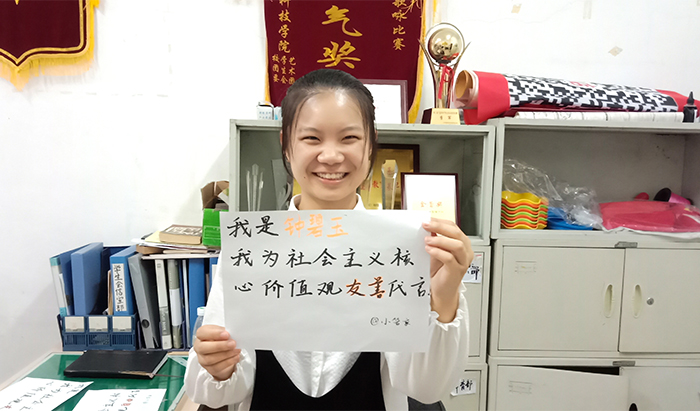 歌咏比赛
气奖
科技学院
艺术团
学生会
校团委
我是钟碧玉
我为社会主义核
心价值观友善代言